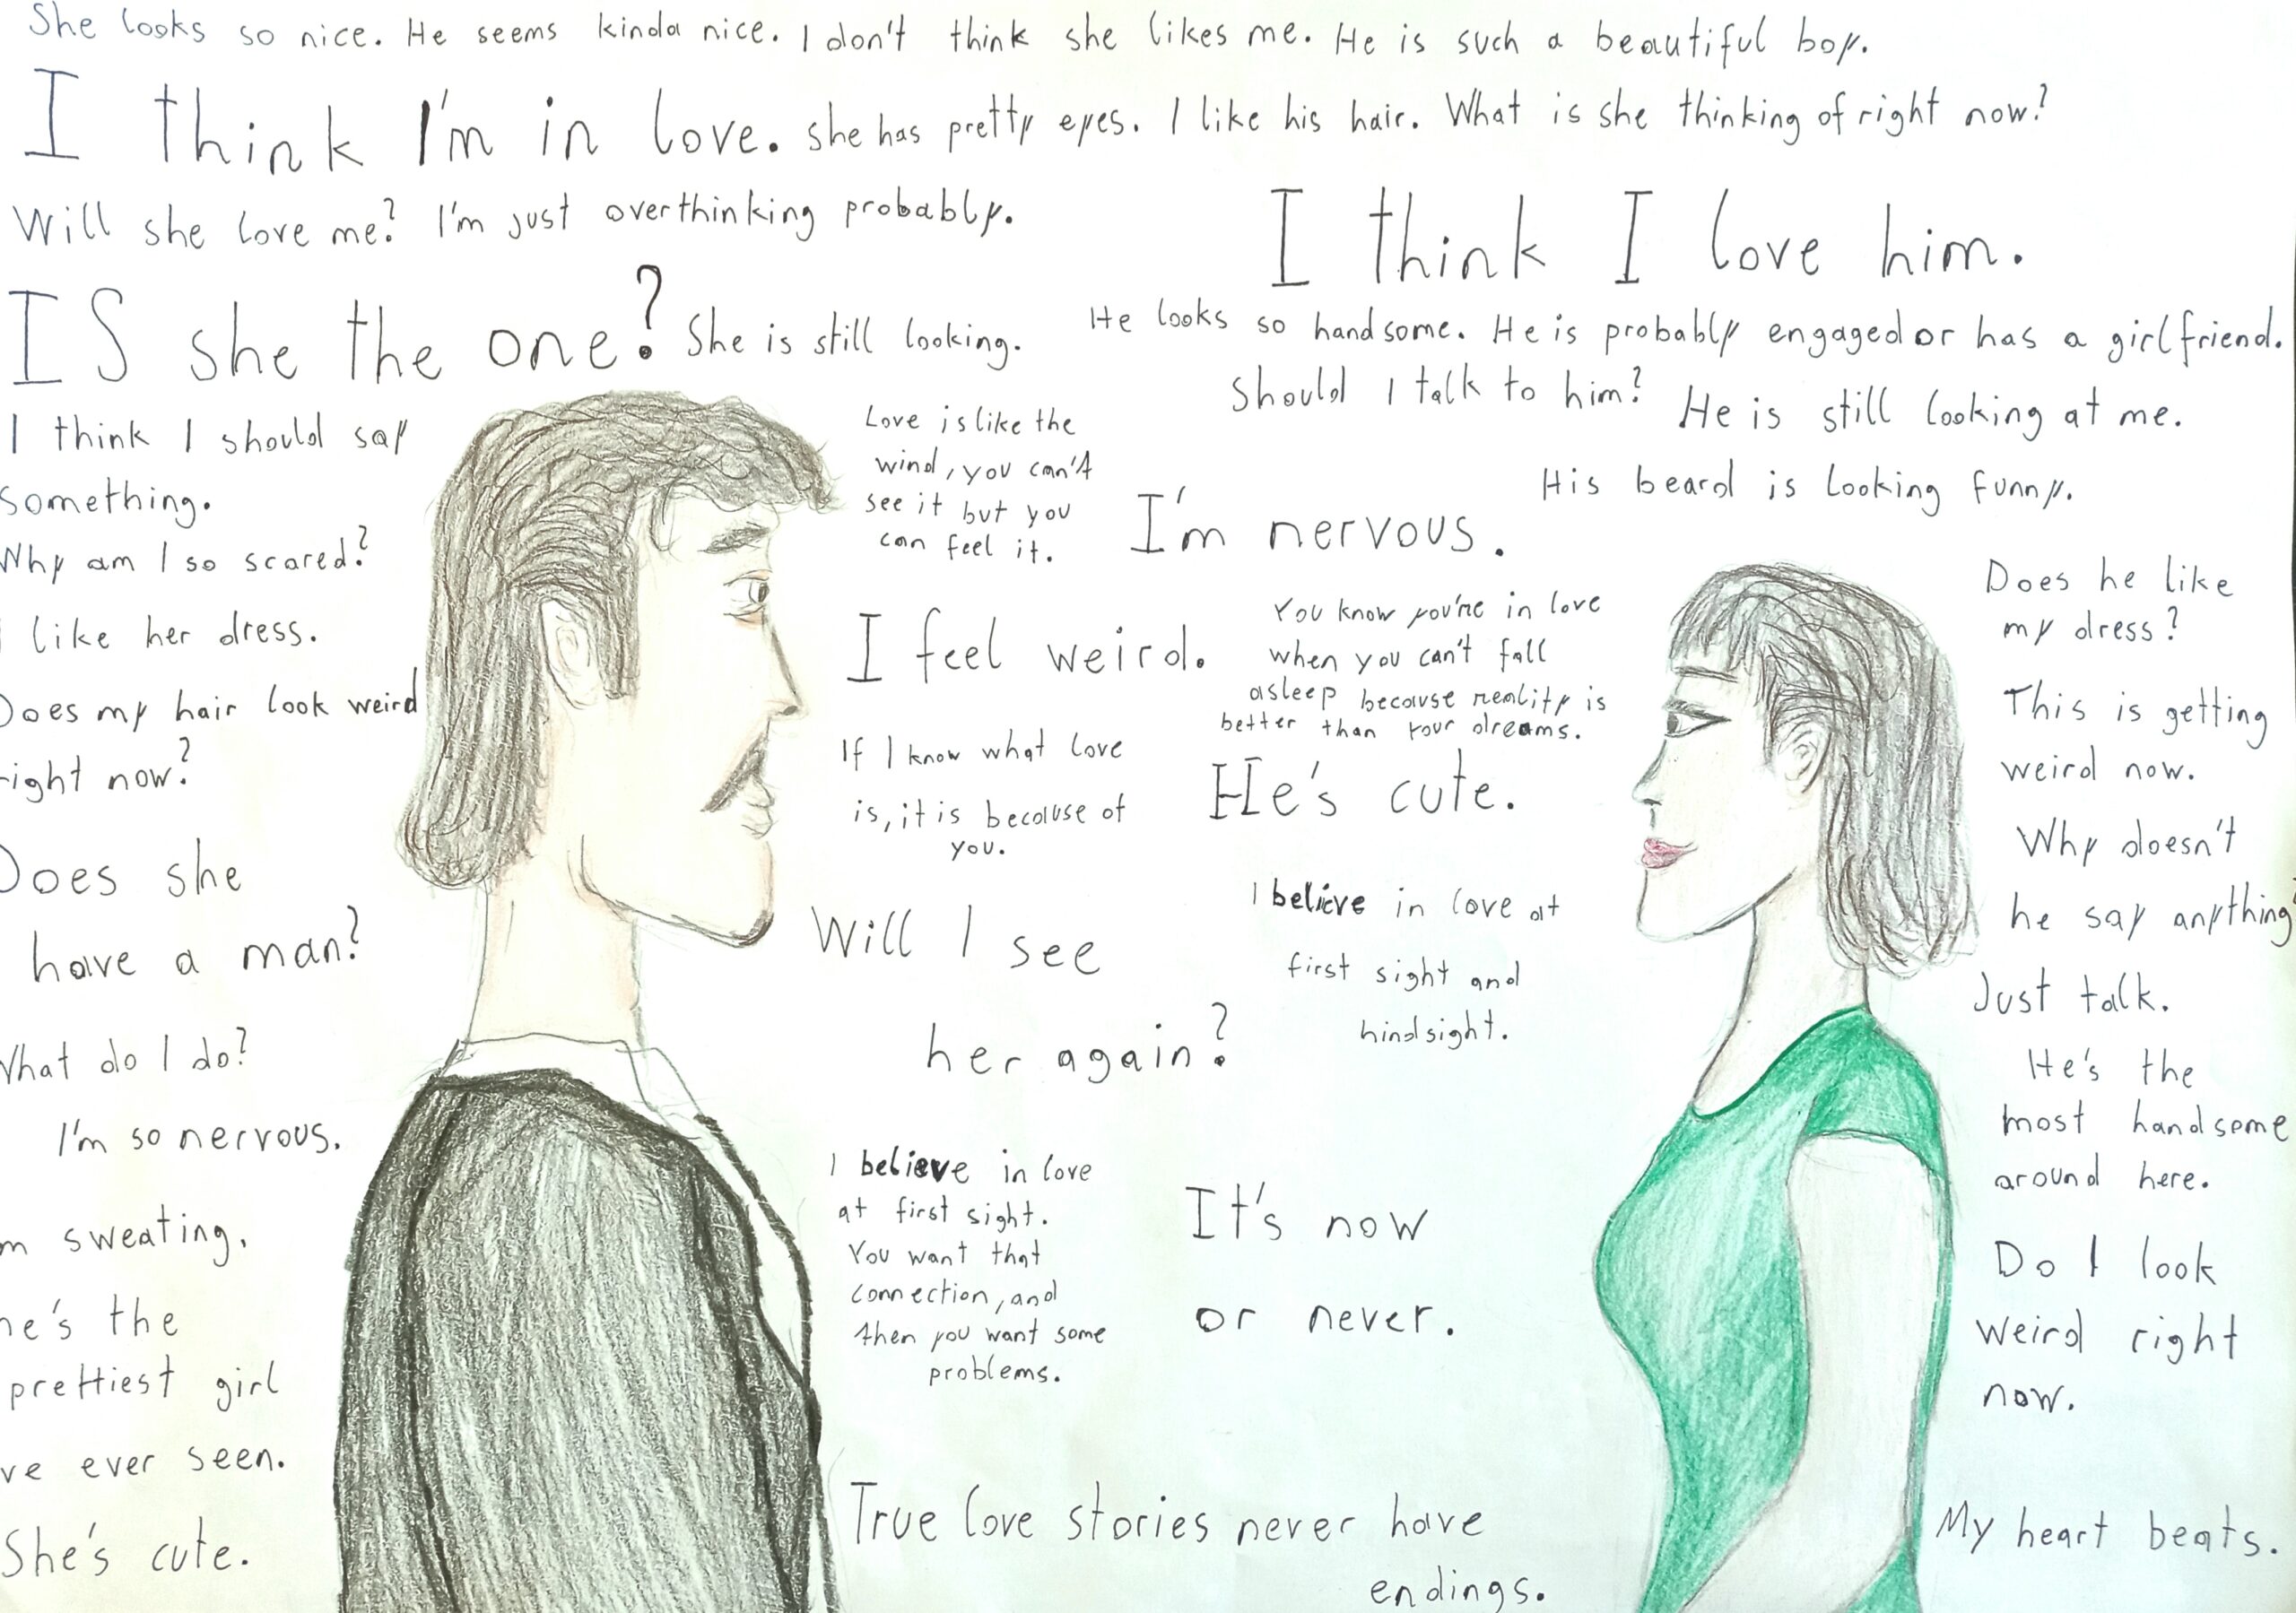 She looks so nice. He seems kinda nice. I don't think she likes me. He is such a beautiful boy.
I think I'm in love. she has pretty eyes. I like his hair. What is she thinking of right now?
Will she love me? I'm just overthinking probably.
I think I love him.
IS she the one? She is still looking.
He looks so handsome. He is probably engaged or has a girlfriend.
Should I talk to him? He is still looking at me.
His beard is looking funny.
I think I should say
something.
Why am I so scared?
I like her dress.
Does my hair look weird
right now?
Does she
have a man?
What do I do?
I'm so nervous.
m sweating.
he's the
prettiest girl
ve ever seen.
She's cute.
Love is like the
wind, you can't
see it but you
can feel it.
I'm nervous.
I feel weird.
You know you're in love
when you can't fall
asleep because reality is
better than your dreams.
If I know what love
is, it is because of
you.
He's cute.
Will I see
her again?
I believe in love at
first sight and
hindsight.
I believe in love
at first sight.
You want that
connection, and
then you want some
problems.
It's now
or never.
True love stories never have
endings.
Does he like
my dress?
This is getting
weird now.
Why doesn't
he say anything
Just talk.
He's the
most handsome
around here.
Do I look
weird right
now.
My heart beats.